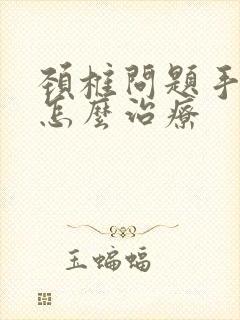 頸椎問題手
怎麼治療
玉蝙蝠